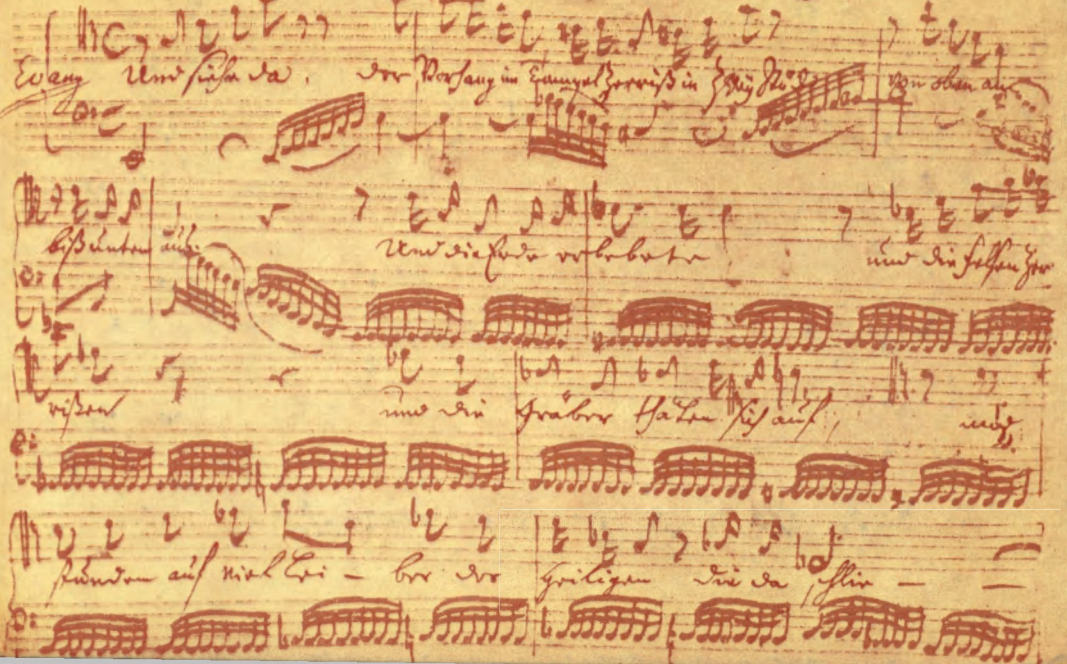 Evang Und siehe da, der Vorhang im Tempel zerriß in zwey Stück von oben an
biß unten aus. Und die Erde erbebete und die Felsen zer
rißen und die Gräber thäten sich auf, und
stunden auf viel Lei - ber der Heiligen die da schlie -